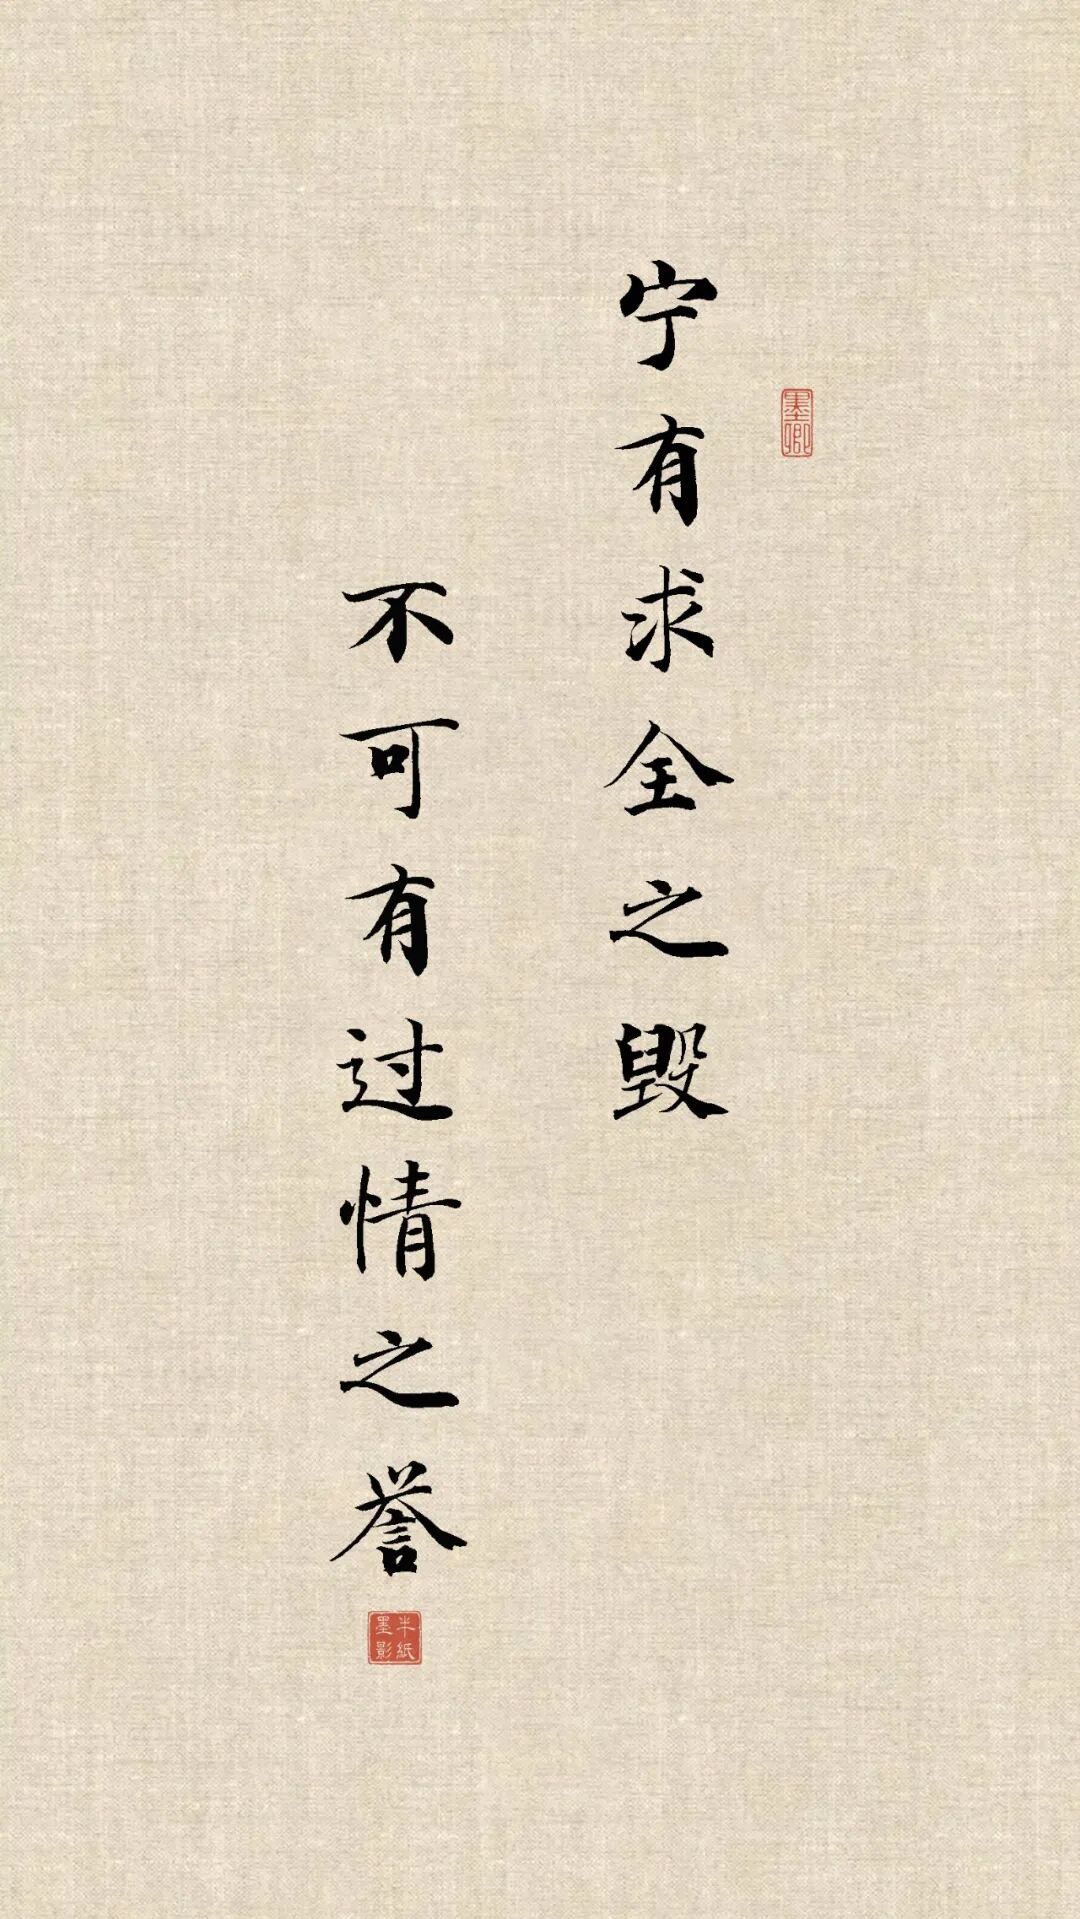 宁有求全之毁
不可有过情之誉
墨卿
半纸
墨影